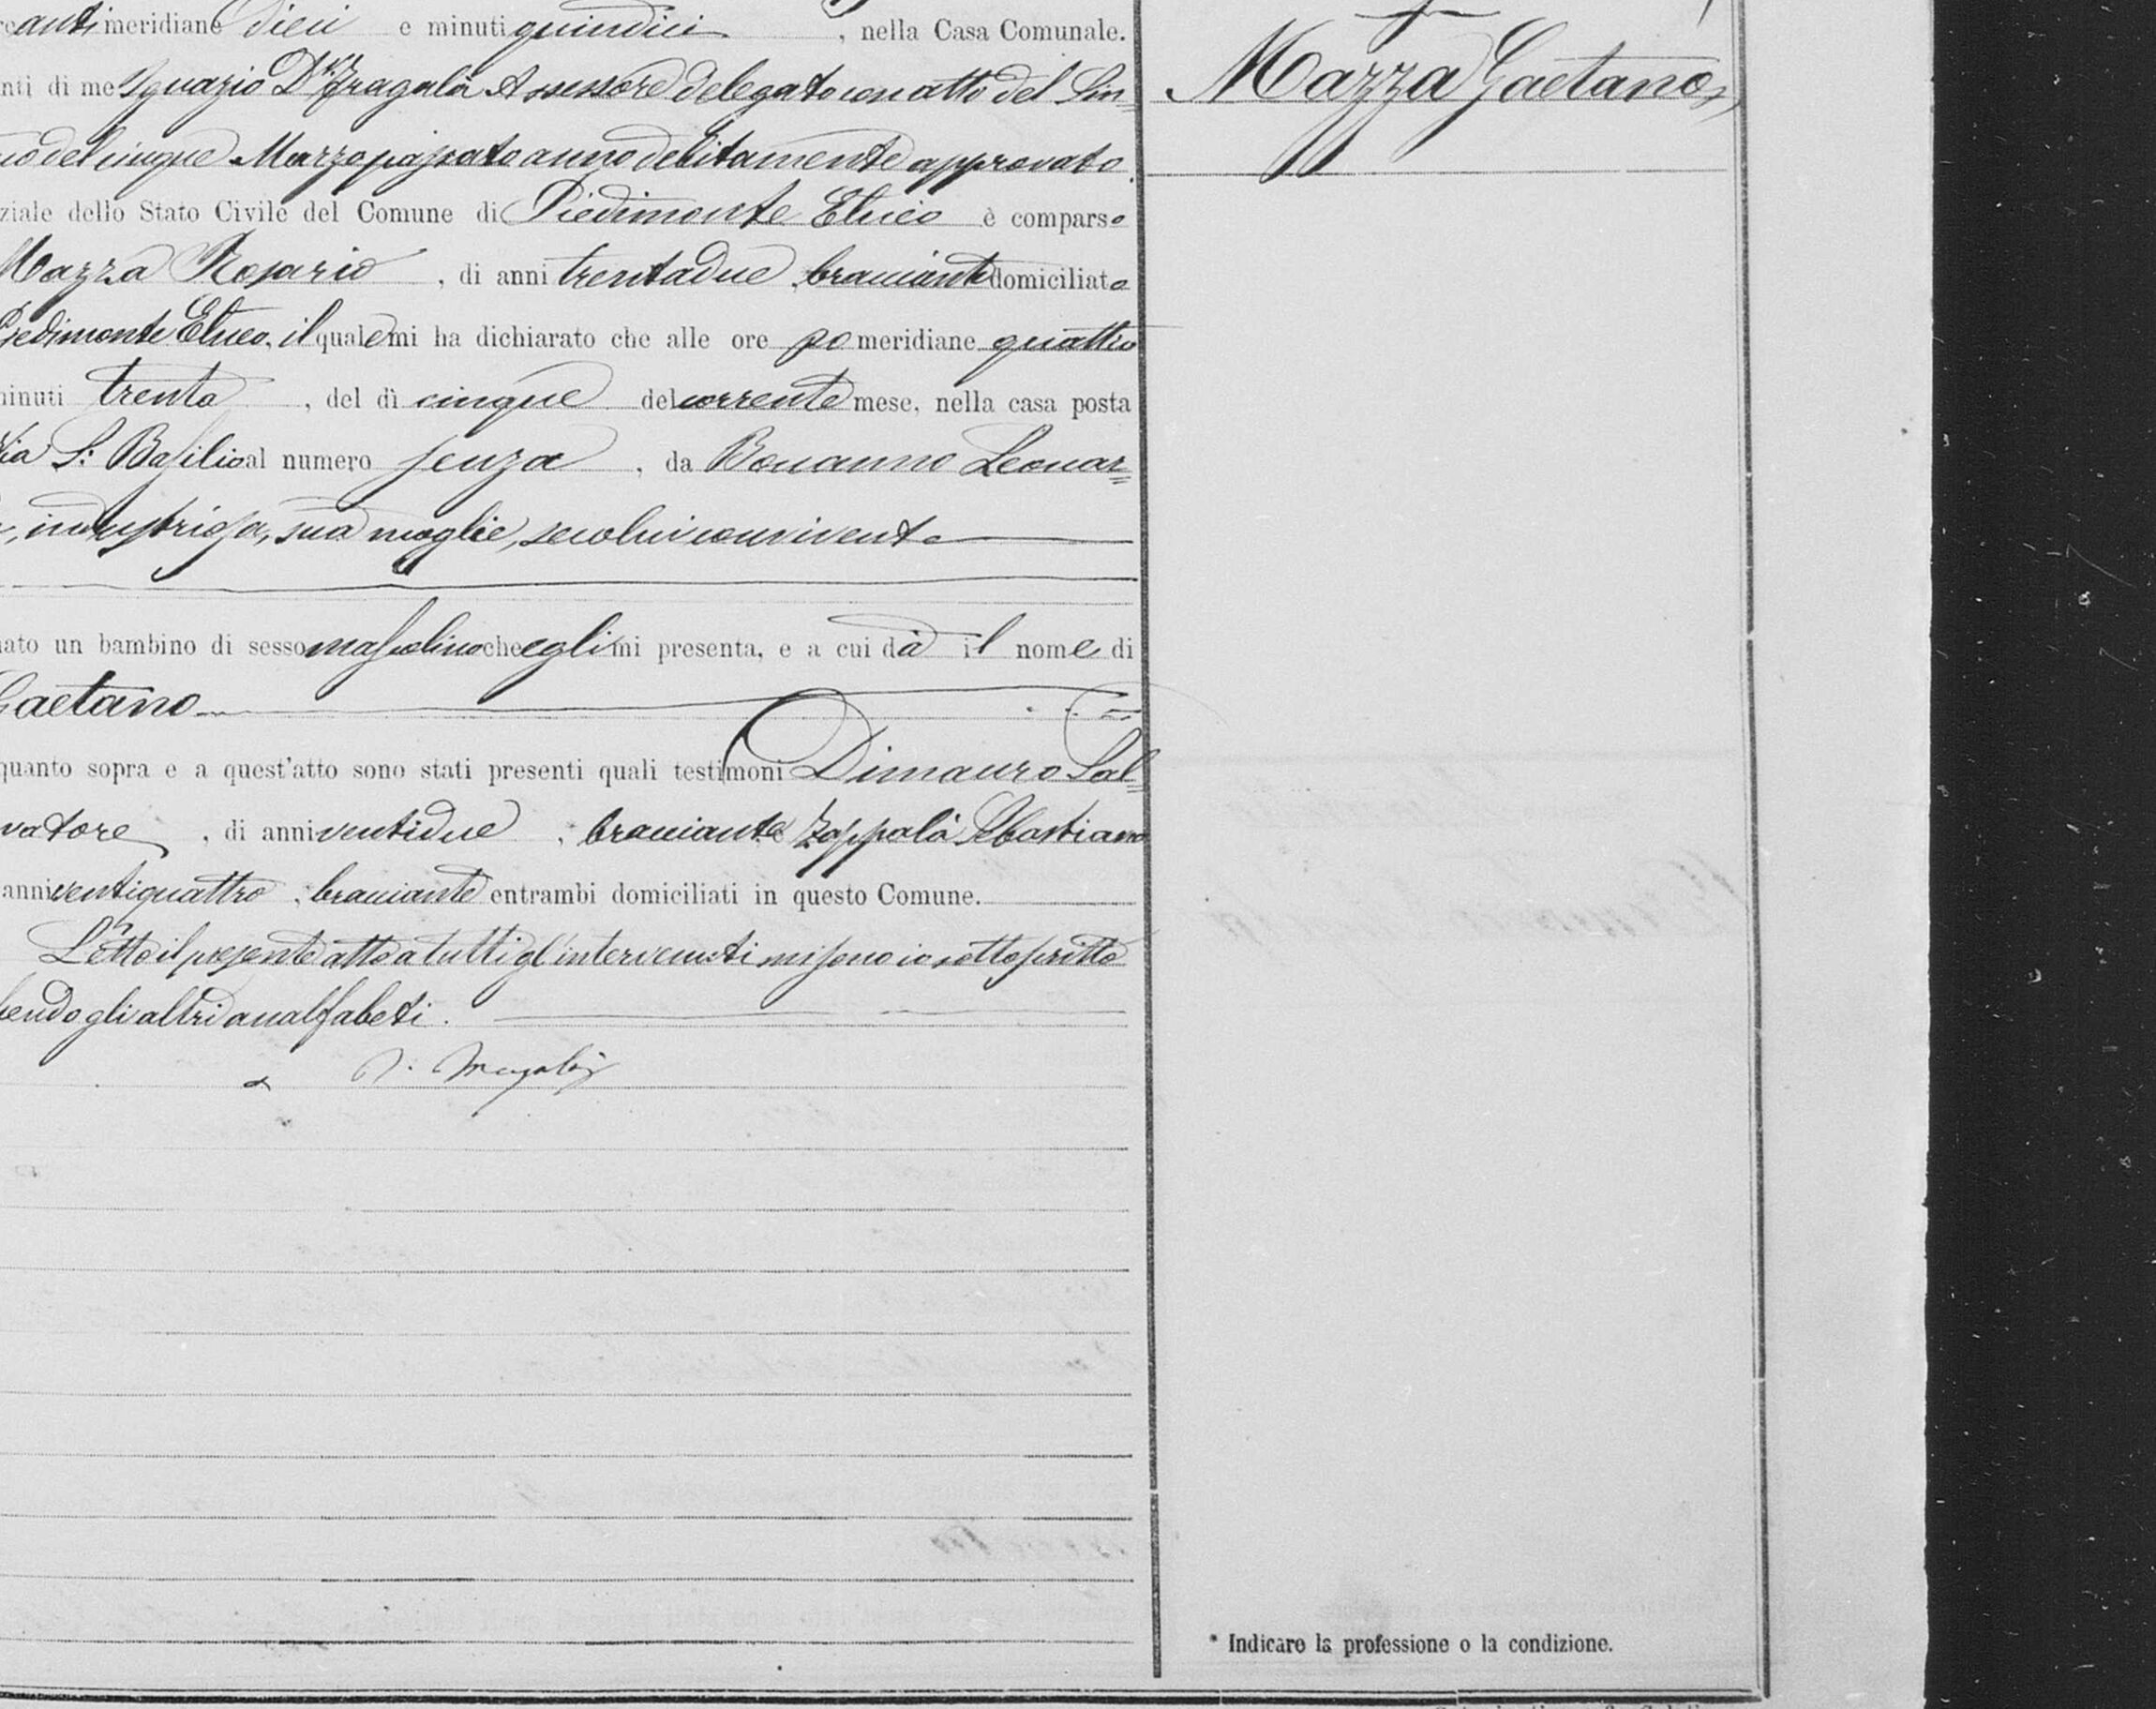 antimeridiane dieci e minuti quindici, nella Casa Comunale.
Mazza Gaetano
nti di me Ignazio Dr. Fragalà Assessore delegato con atto del Sin=
co del cinque Marzo passato anno debitamente approvato.
ziale dello Stato Civile del Comune di Piedimonte Etneo è comparso
Mazza Rosario, di anni trentadue, bracciante domiciliato
Piedimonte Etneo, il quale mi ha dichiarato che alle ore pomeridiane quattro
minuti trenta, del dì cinque del corrente mese, nella casa posta
Via S: Basilio al numero senza, da Bonanno Leonar=
, industriosa, sua moglie, secolui convivente
nato un bambino di sesso mascolino che egli mi presenta, e a cui dà il nome di
Gaetano
quanto sopra e a quest'atto sono stati presenti quali testimoni Dimauro Sal=
vatore, di anni ventidue, bracciante e Zappalà Sebastiano
anni ventiquattro, bracciante entrambi domiciliati in questo Comune.
Letto il presente atto a tutti gl'intervenuti mi sono io sottoscritto
sendo gli altri analfabeti.
* Indicare la professione o la condizione.